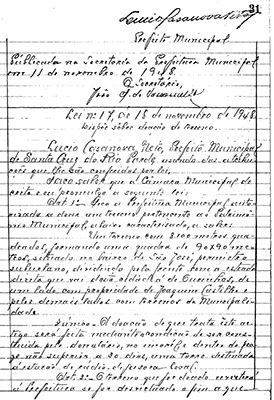 31
Lucio Casanova Neto
Prefeito Municipal
Publicada na Secretaria da Prefeitura Municipal
em 11 de novembro de 1948.
O Secretário,
João
Lei n.º 17, de 15 de novembro de 1948.
Dispõe sobre doação de terreno.
Lucio Casanova Neto, Prefeito Municipal
de Santa Cruz do Rio Pardo, usando das atribui-
ções que lhe são conferidas por lei,
Faço saber que a Câmara Municipal de-
creta e eu promulgo a seguinte lei:
Art. 1º - Fica a Prefeitura Municipal auto-
rizada a doar um terreno pertencente ao Patrimo-
nio Municipal, abaixo caracterizado, a saber:
Um terreno com 8100 metros qua-
drados, formando uma quadra de 90x90 me-
tros, situado no bairro de São José, perimetro
suburbano, dividindo pela frente com a estrada
que vai desta cidade á de de
um lado com propriedade de Joaquim e
pelos demais lados com terrenos da Municipali-
dade.
§ unico. A doação de que trata este ar-
tigo será feita mediante condição de ser cons-
truida pelo donatario, no imovel e dentro do pra-
zo não superior a 20 dias, uma torre destinada
á estação de rádio
Art. 2º - O terreno que for doado reverterá
á Prefeitura se for desvirtuado o fim a que